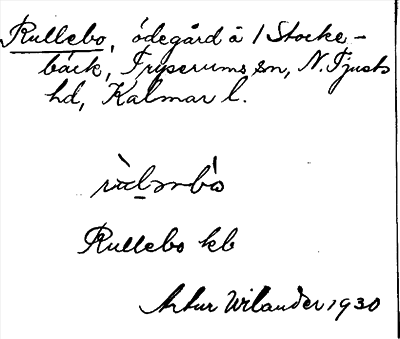 Rullebo, ödegård å 1 Stocke-
bäck, Tryserums sn, N. Tjusts
hd, Kalmar l.
Rullebo kb
Artur Wilander 1930